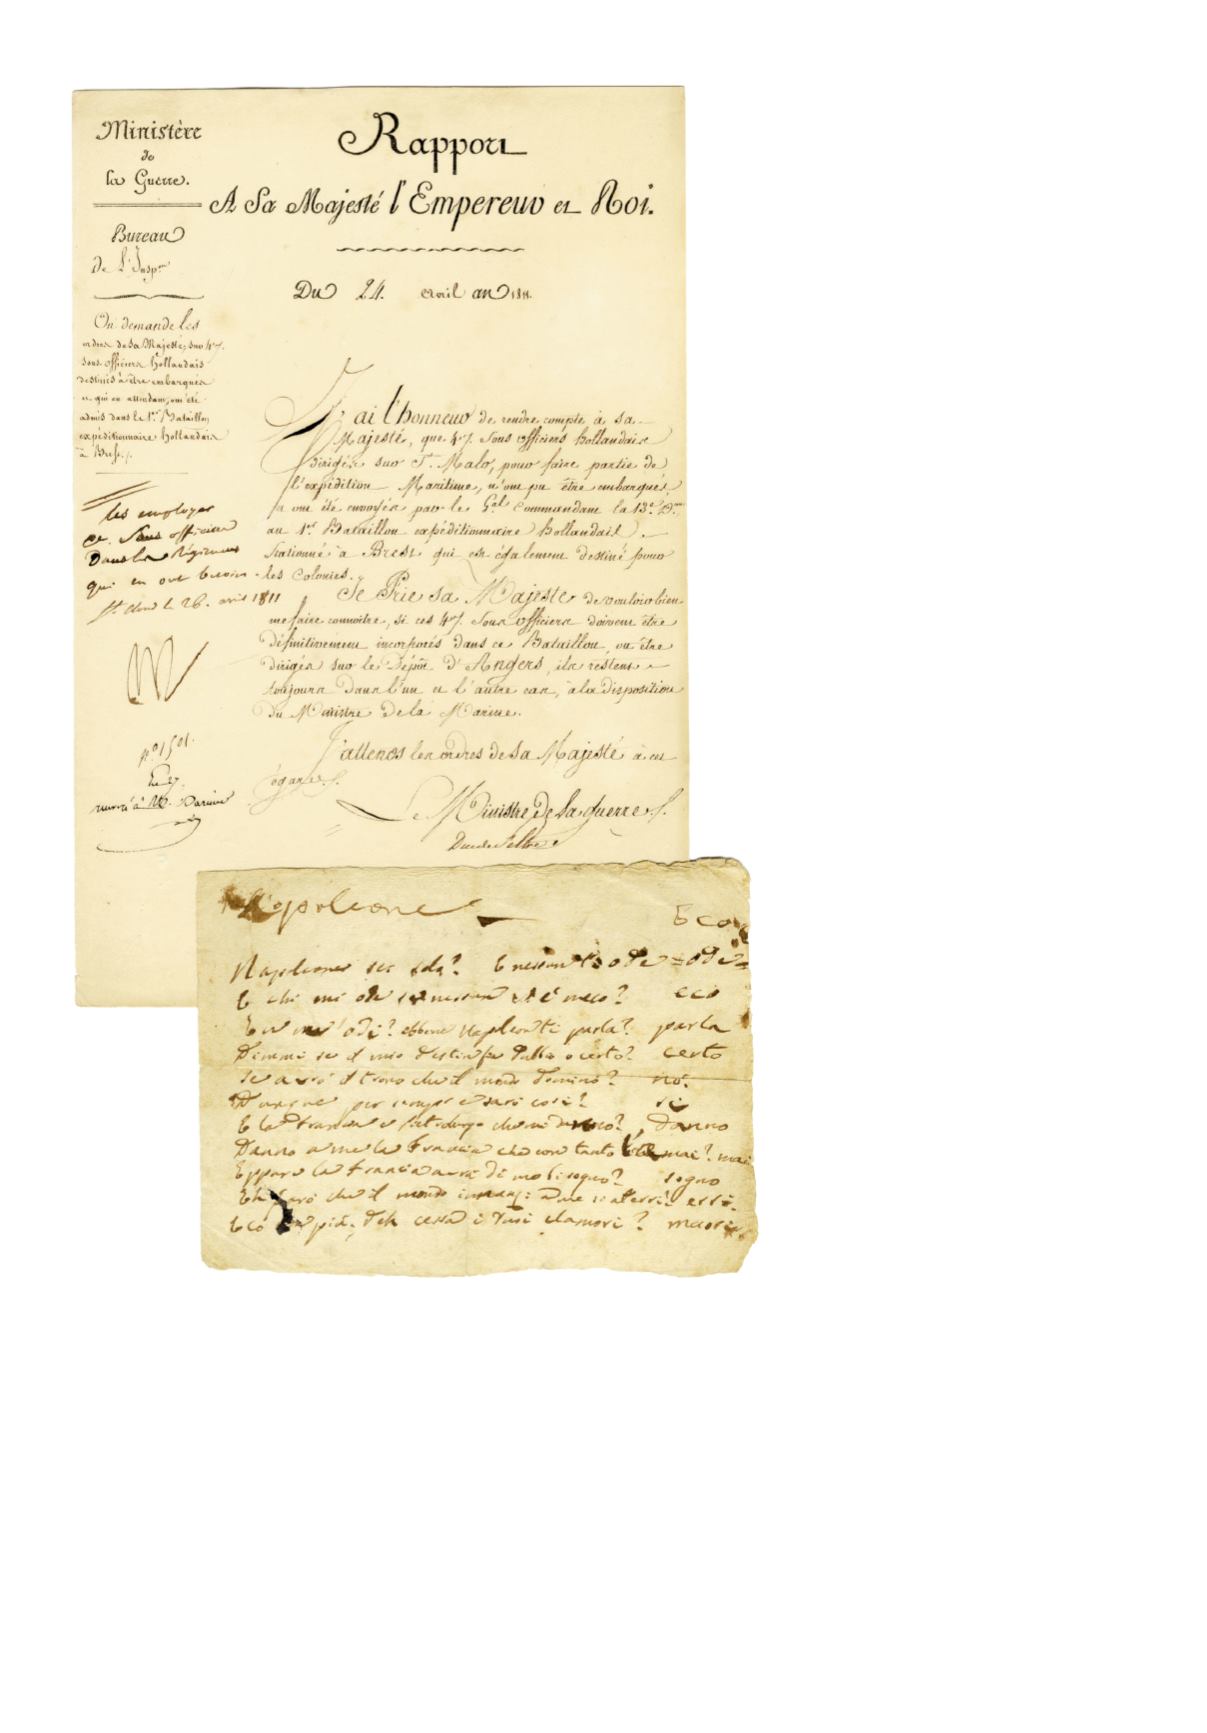 Ministère
de
la Guerre.
Bureau
de l'Insp.on
On demande les
ordres de sa Majesté, sur 47.
sous officiers hollandais
destinés à être embarqués
et qui en attendant, ont été
admis dans le 1.er Bataillon
expéditionnaire hollandais
à Brest.
Rapport
A Sa Majesté l'Empereur et Roi.
Du 24. avril an 1811.
J'ai l'honneur de rendre compte à sa
Majesté, que 47. sous officiers hollandais
dirigés sur St. Malo, pour faire partie de
l'expédition Maritime, n'ont pu être embarqués,
ont été envoyés par le G.al Commandant la 13.e D.on
au 1.er Bataillon expéditionnaire hollandais
stationné à Brest qui est également destiné pour
les Colonies.
Je Prie sa Majesté de vouloir bien
me faire connoitre, si ces 47. sous officiers doivent être
définitivement incorporés dans ce Bataillon, ou être
dirigés sur le Dépôt d'Angers, ils restent
toujours dans l'un et l'autre cas, à la disposition
du Ministre de la Marine.
J'attends les ordres de sa Majesté à cet
égard.
Le Ministre de la guerre
Duc de Feltre
les employer
ce sous officiers
dans les Régimens
qui en ont besoin
St. Cloud le 26. avril 1811
N
nº 1501.
renvoyé à M.
Napoleone
Eco
Napoleone sei solo? E nessun t'ode = ode =
E chi mi ode se nessun è meco? eco
Eco m'odi? ebbene Napoleon ti parla? parla
Dimmi se il mio destin fu dubbio o certo? certo
Se avrò il trono che il mondo dominò? no.
Dunque per sempre sarò così? si
E la Francia e che mi danno? danno
Danno a me la Francia che con tanto mai? mai
Eppure la Francia avrà di me bisogno? sogno
che il mondo innanzi a me s'atterri: erri.
Eco più, deh cessa i tuoi clamori? muori.